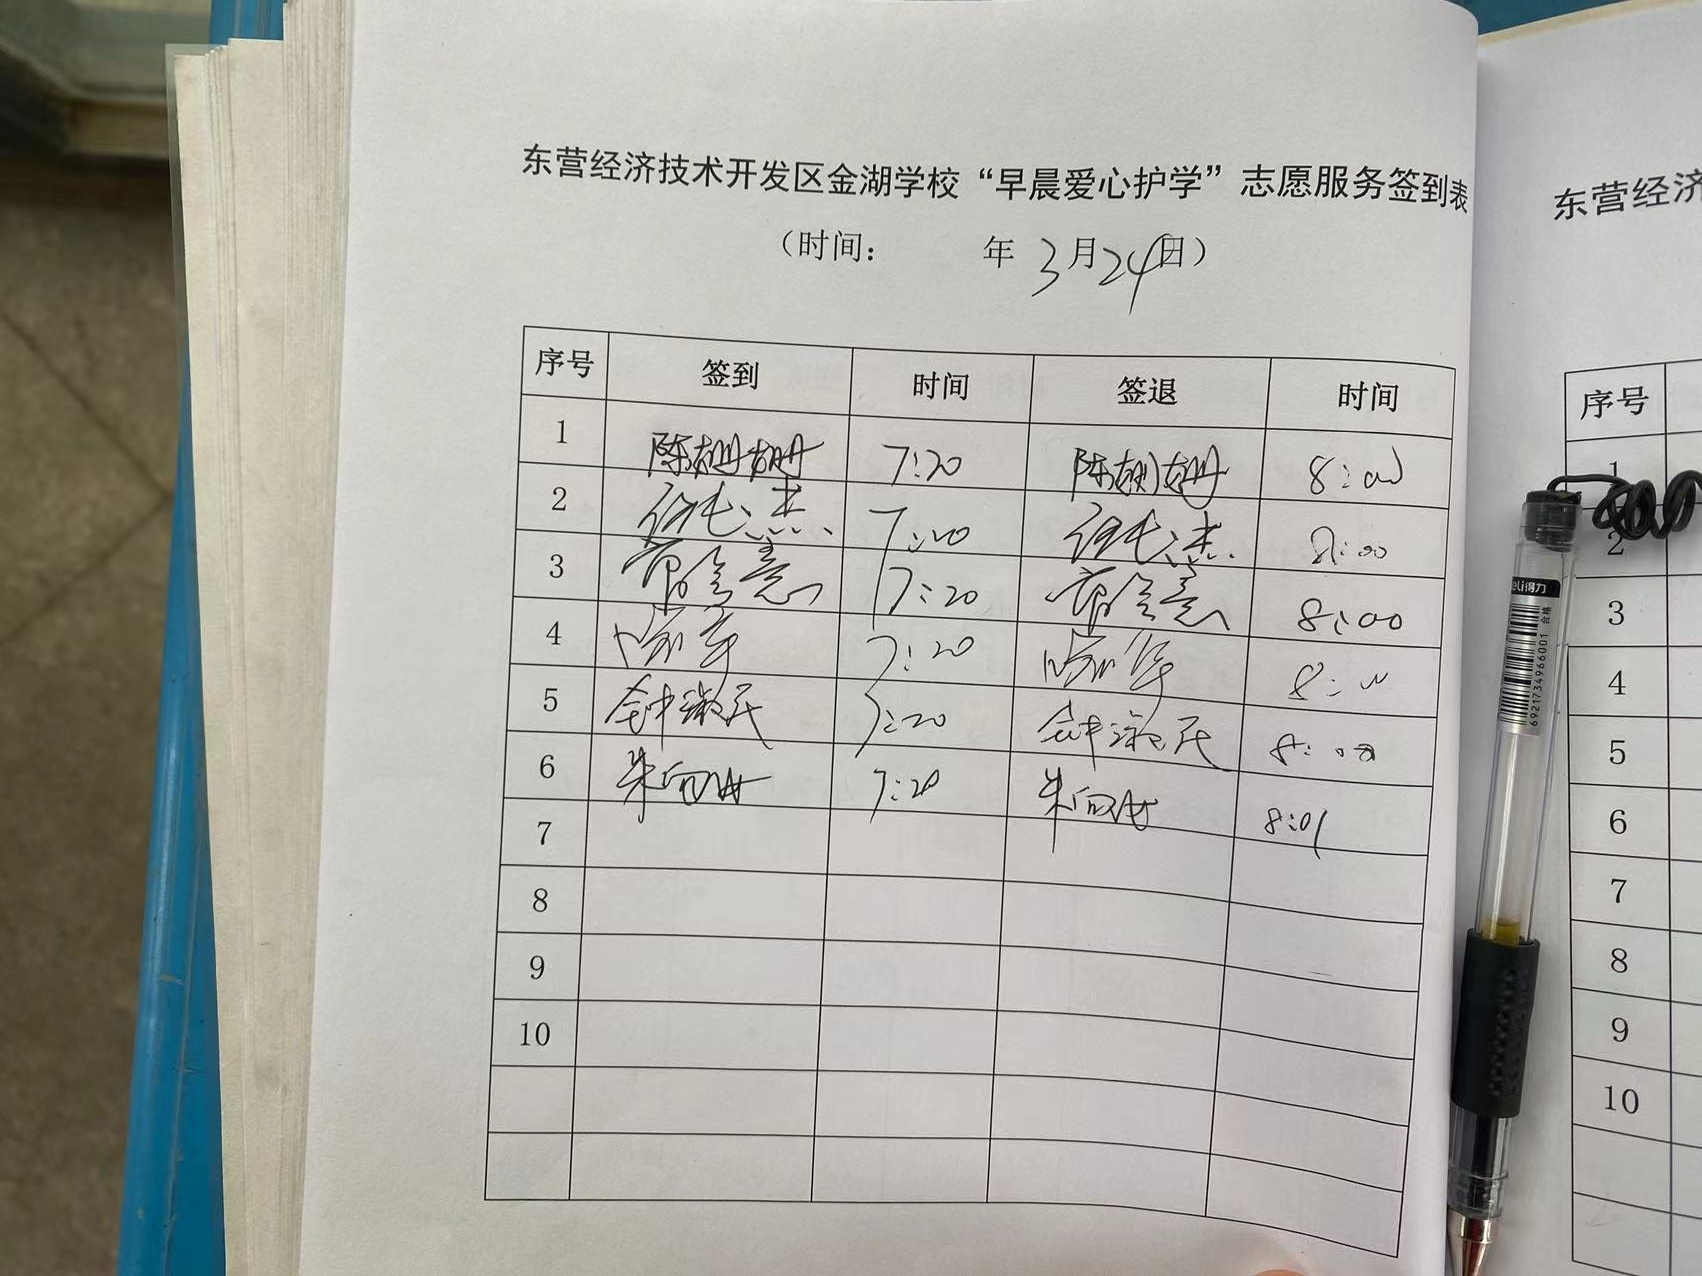 东营经济技术开发区金湖学校“早晨爱心护学”志愿服务签到表
（时间：　　年 3月24日）
序号 签到 时间 签退 时间
1 陈姗姗 7:20 陈姗姗 8:00
2 7:20 8:00
3 7:20 8:00
4 7:20 8:00
5 钟淑民 7:20 钟淑民 8:00
6 朱向 7:20 朱向 8:01
7
8
9
10
东营经济
序号
1
2
3
4
5
6
7
8
9
10
deli得力
合格
6921734966001